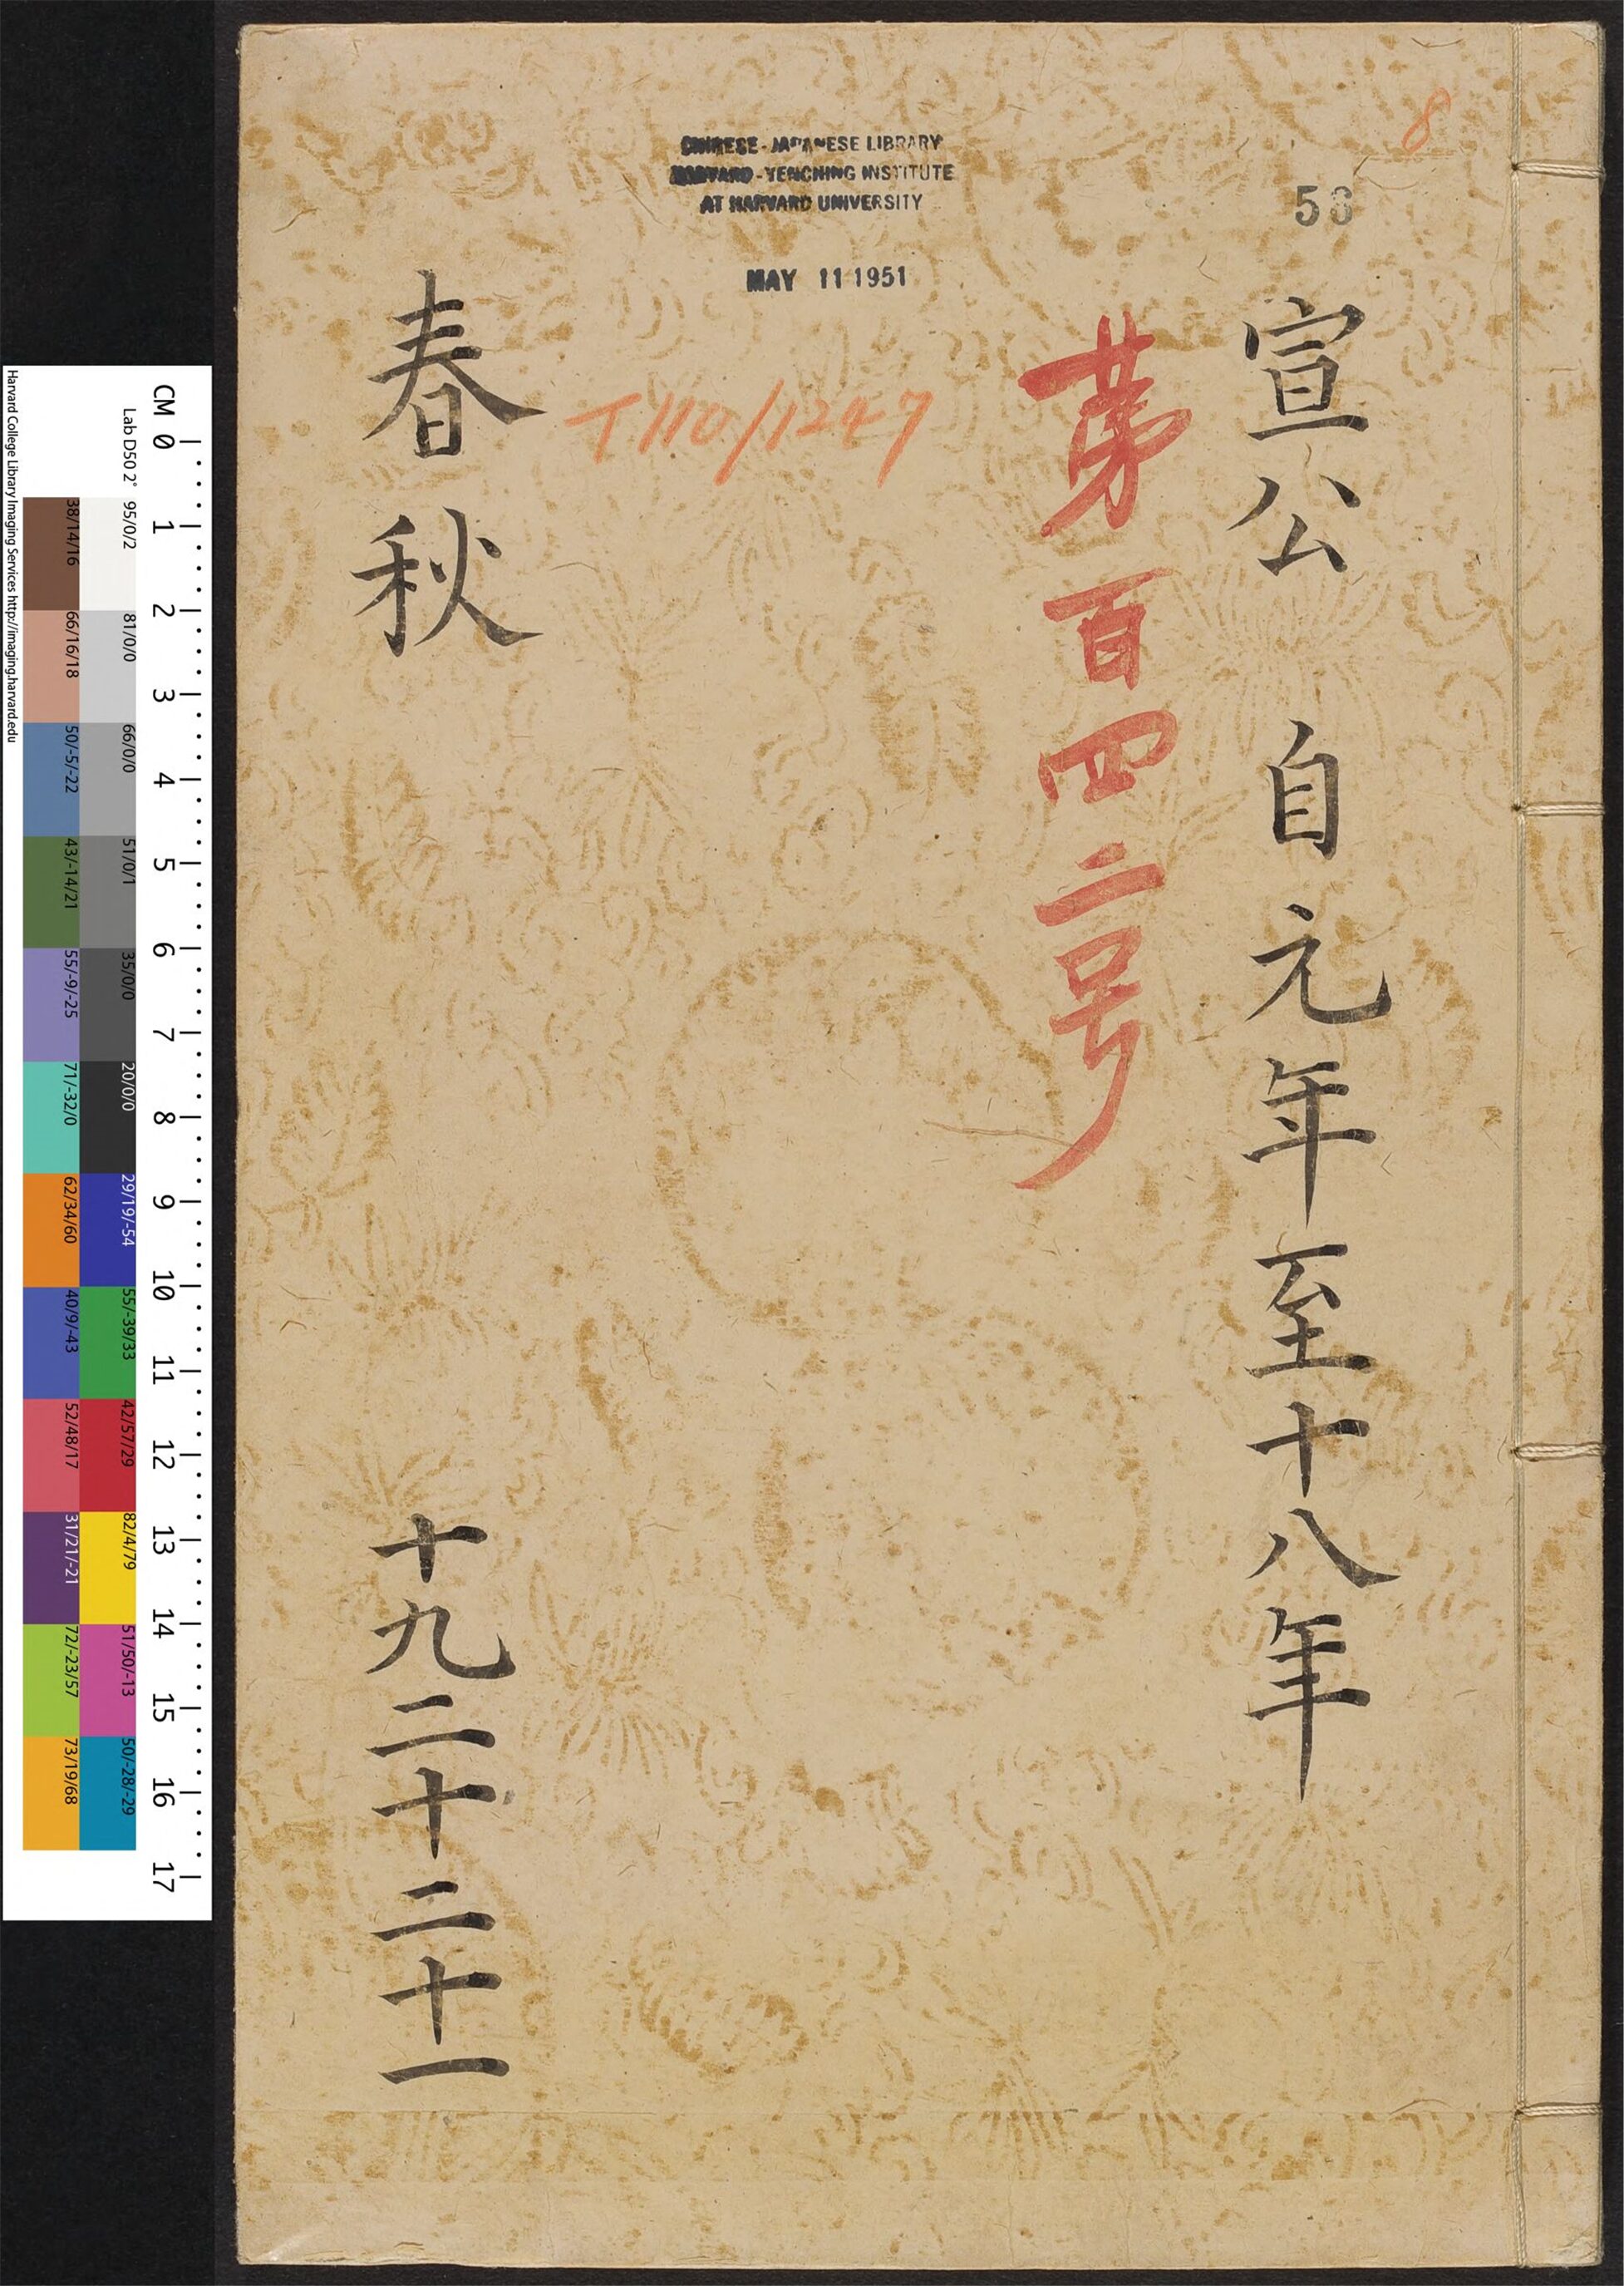 8
宣公 自元年至十八年
第百四二号
CHINESE-JAPANESE LIBRARY
HARVARD-YENCHING INSTITUTE
AT HARVARD UNIVERSITY
MAY 11 1951
T110/1247
春秋 十九二十二十一
CM 0 1 2 3 4 5 6 7 8 9 10 11 12 13 14 15 16 17
Lab D50 2° 95/0/2 81/0/0 66/0/0 51/0/1 35/0/0 20/0/0 29/19/-54 55/-39/33 42/57/29 82/4/79 51/50/-13 50/-28/-29
38/14/16 66/16/18 50/-5/-22 43/-14/21 55/-9/-25 71/-32/0 62/34/60 40/9/-43 52/48/17 31/21/-21 72/-23/57 73/19/68
Harvard College Library Imaging Services http://imaging.harvard.edu